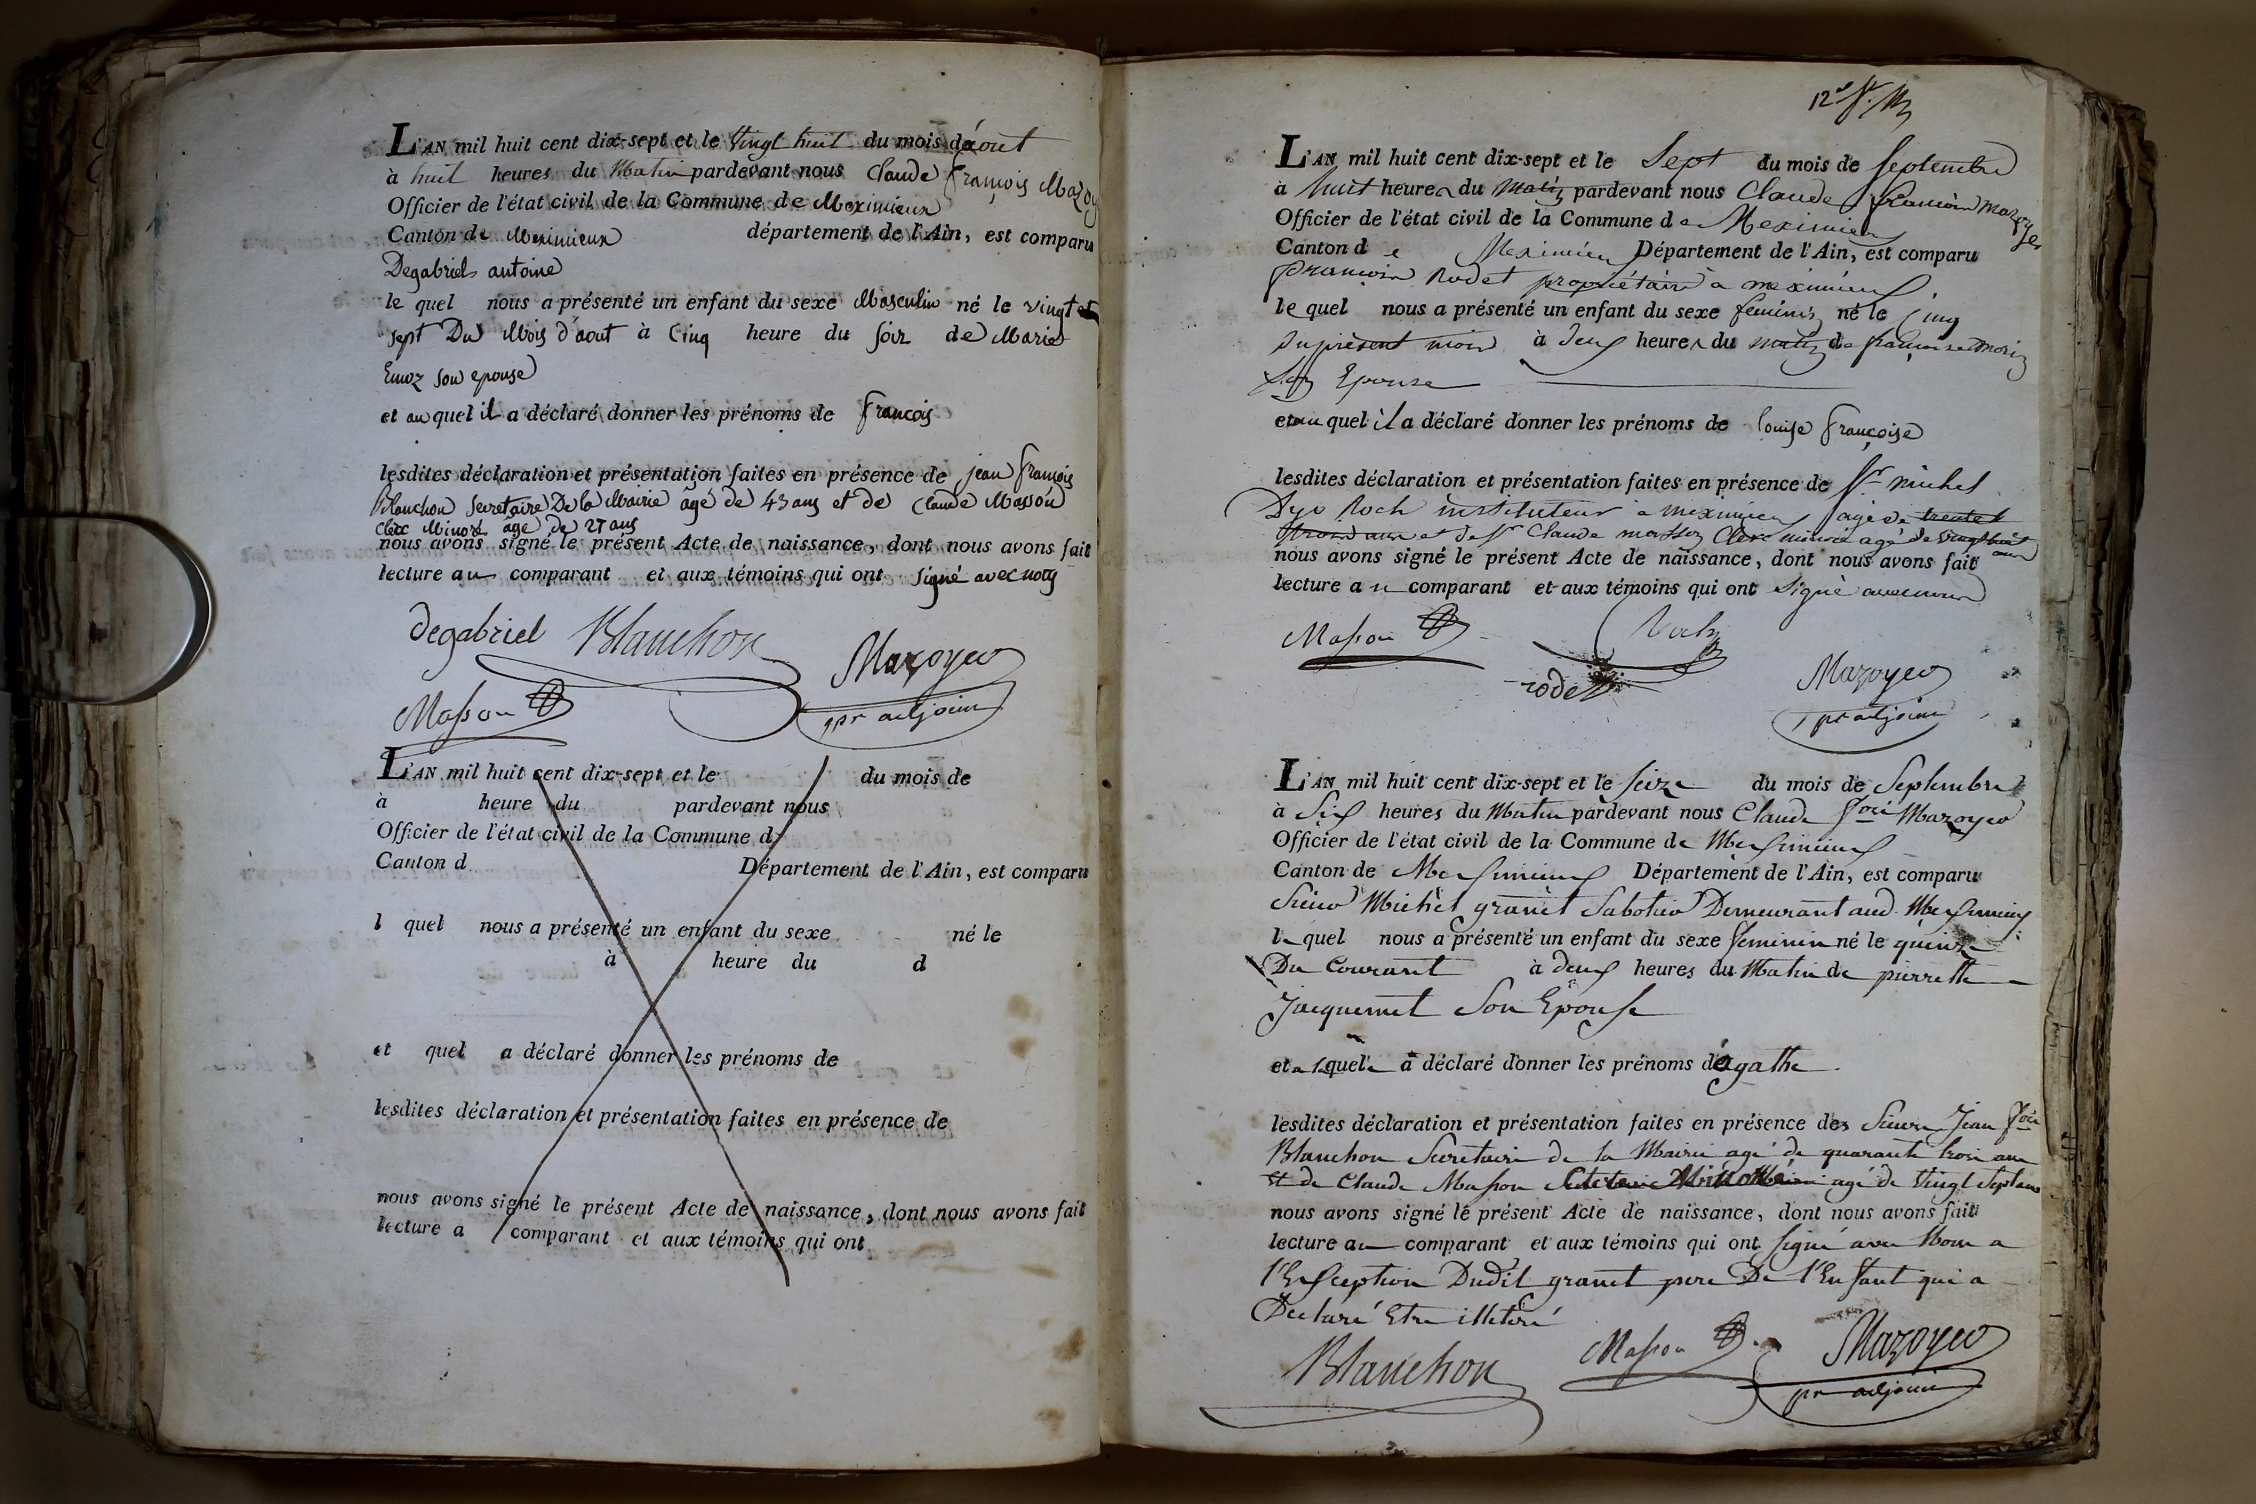 L'AN mil huit cent dix-sept et le vingt huit du mois d'aout
à huit heures du Matin pardevant nous Claude François Mazoy
Officier de l'état civil de la Commune de Meximieux
Canton de Meximieux département de l'Ain, est comparu
Degabriel antoine
le quel nous a présenté un enfant du sexe Masculin né le vingt et
sept Du Mois d'aout à Cinq heure du soir de Marie
son epouse
et au quel il a déclaré donner les prénoms de françois
lesdites déclaration et présentation faites en présence de jean françois
Blanchon Secretaire De la Mairie âgé de 43 ans et de Claude Masson
Clerc Minoré âgé de 27 ans
nous avons signé le présent Acte de naissance, dont nous avons fait
lecture au comparant et aux témoins qui ont signé avec nous
degabriel Blanchon
Mazoyer
Masson
pr adjoint
L'AN mil huit cent dix-sept et le du mois de
à heure du pardevant nous
Officier de l'état civil de la Commune d
Canton d Département de l'Ain, est comparu
l quel nous a présenté un enfant du sexe né le
à heure du d
et quel a déclaré donner les prénoms de
lesdites déclaration et présentation faites en présence de
nous avons signé le présent Acte de naissance, dont nous avons fait
lecture a comparant et aux témoins qui ont
L'AN mil huit cent dix-sept et le Sept du mois de Septembre
à huit heures du matin pardevant nous Claude françois Mazoyer
Officier de l'état civil de la Commune de Meximieux
Canton de Meximieux Département de l'Ain, est comparu
françois Rodet propriétaire à meximieux
le quel nous a présenté un enfant du sexe feminin né le Cinq
du présent mois à deux heures du matin de françoise morin
Son Epouse
et au quel il a déclaré donner les prénoms de louise françoise
lesdites déclaration et présentation faites en présence de Sr michel
Roch instituteur a meximieux agé de trente
trois ans et de Sr Claude masson Clerc minoré agé de vingt huit ans
nous avons signé le présent Acte de naissance, dont nous avons fait
lecture au comparant et aux témoins qui ont signé avec nous
Masson Roch
rodet
Mazoyer
pr adjoint
L'AN mil huit cent dix-sept et le seize du mois de Septembre
à Six heures du Matin pardevant nous Claude fois Mazoyer
Officier de l'état civil de la Commune de Meximieux
Canton de Meximieux Département de l'Ain, est comparu
Sieur Michel granet Sabotier Demeurant aud. Meximieux
le quel nous a présenté un enfant du sexe feminin né le quinze
Du Courant à deux heures du Matin de pierrette
Jacquemet Son Epouse
et a déclaré donner les prénoms d'agathe
lesdites déclaration et présentation faites en présence des Sieurs Jean fois
Blanchon Secretaire de la Mairie agé de quarante trois ans
et de Claude Masson Clerc Minoré agé de vingt Sept ans
nous avons signé le présent Acte de naissance, dont nous avons fait
lecture au comparant et aux témoins qui ont signé avec Nous a
l'Exception Dudit granet pere De l'Enfant qui a
Declaré Etre illeteré
Blanchon Masson Mazoyer
pr adjoint